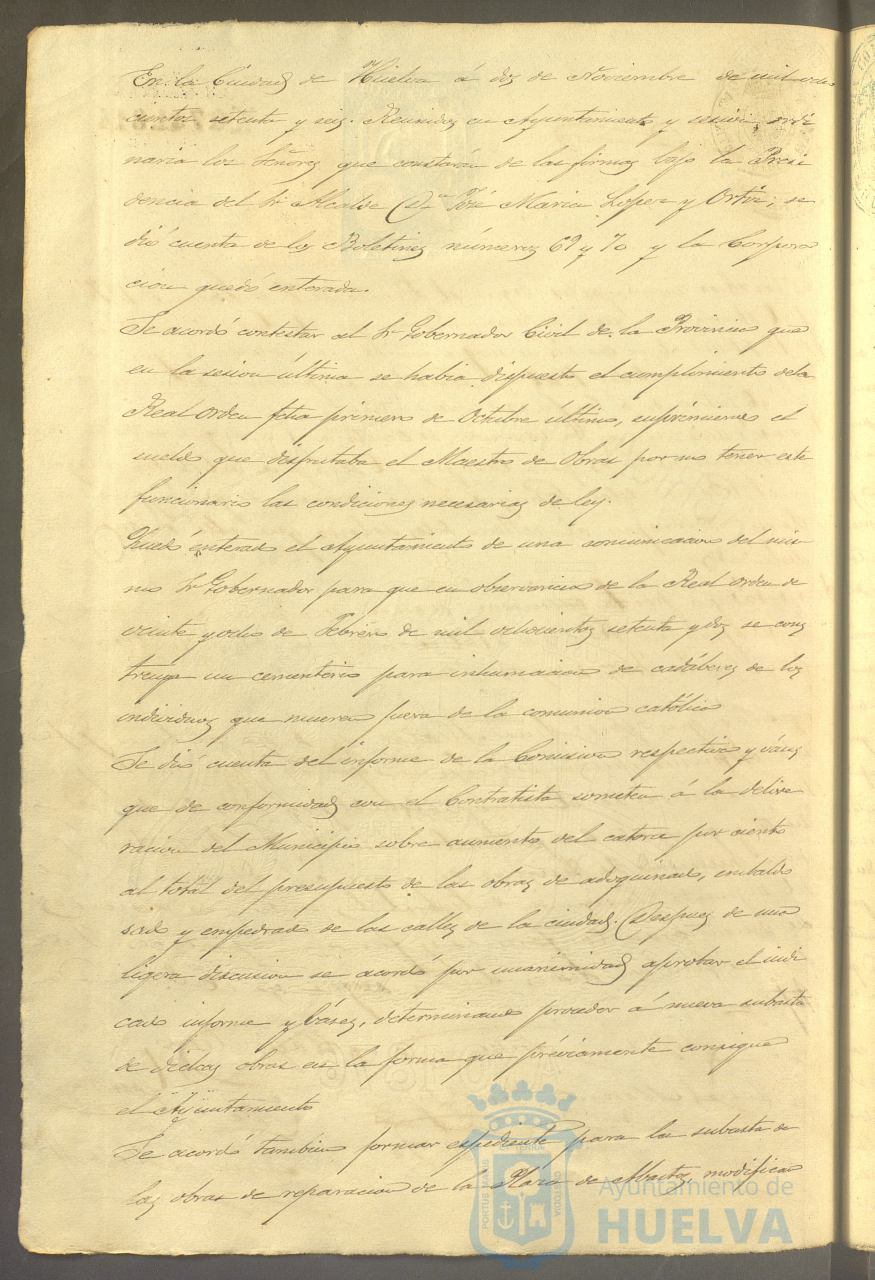 En la Ciudad de Huelva á dos de Noviembre de mil ocho
cientos setenta y seis. Reunidos en Ayuntamiento y sesion ordi
naria los Señores que constarán de las firmas bajo la Presi
dencia del Sr Alcalde Dn José Maria Lopez y Ortiz; se
dió cuenta de los Boletines números 69 y 70 y la Corpora
cion quedó enterada.
Se acordó contestar al Sr Gobernador Civil de la Provincia que
en la sesion última se habia dispuesto el cumplimiento dela
Real orden fcha primero de Octubre último, suprimiendo el
sueldo que disfrutaba el Maestro de Obras por no tener este
funcionario las condiciones necesarias de ley.
Quedó enterado el Ayuntamiento de una comunicacion del mis
mo Sr Gobernador para que en observancia de la Real orden de
veinte y ocho de Febrero de mil ochocientos setenta y dos se cons
truya un cementerio para inhumacion de cadáberes de los
individuos que mueren fuera de la comunion católica
Se dió cuenta del informe de la Comision respectiva y báses
que de conformidad con el Contratista someten á la delibe
racion del Municipio sobre aumento del catorce por ciento
al total del presupuesto de las obras de adoquinado, embaldo
sado y empedrado de las calles de la ciudad. Despues de una
ligera discusion se acordó por unanimidad aprobar el indi
cado informe y báses, determinando proceder á nueva subasta
de dichas obras en la forma que préviamente consigne
el Ayuntamiento
Se acordó tambien formar espediente para la subasta de
las obras de reparacion de la Plaza de Abastos, modifican
Ayuntamiento de
HUELVA